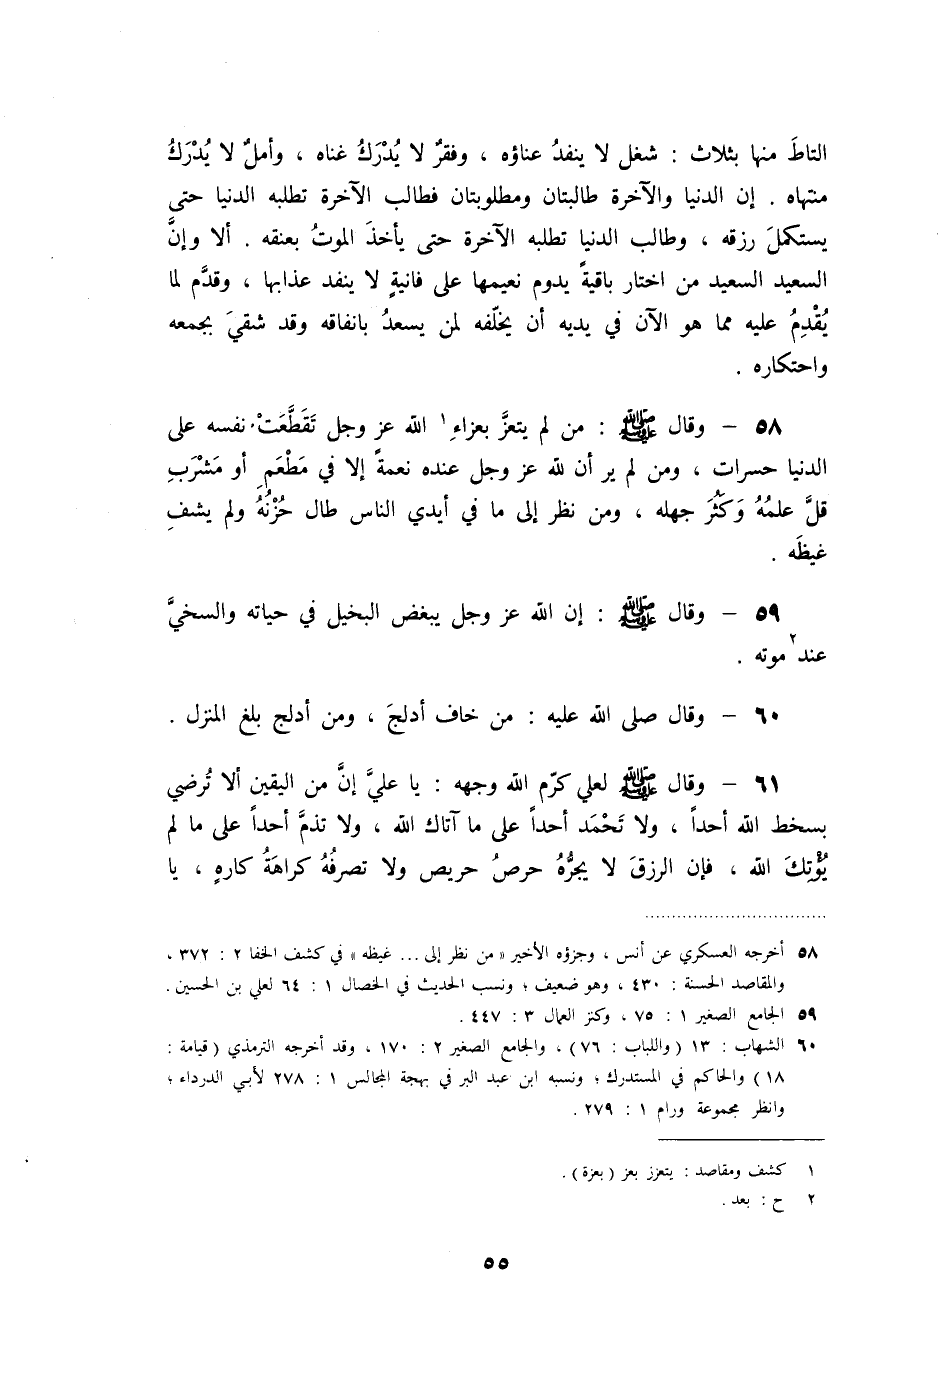 التاطَ منها بثلاث : شغل لا ينفدُ عناؤه ، وفقرٌ لا يُدْرَكُ غناه ، وأملٌ لا يُدْرَكُ
منتهاه . إن الدنيا والآخرة طالبتان ومطلوبتان فطالب الآخرة تطلبه الدنيا حتى
يستكملَ رزقه ، وطالب الدنيا تطلبه الآخرة حتى يأخذَ الموتُ بعنقه . ألا وإنَّ
السعيد السعيد من اختار باقيةً يدوم نعيمها على فانيةٍ لا ينفد عذابها ، وقدَّم لما
يُقْدِمُ عليه مما هو الآن في يديه أن يخلّفه لمن يسعدُ بانفاقه وقد شقيَ بجمعه
واحتكاره .
٥٨ – وقال ﷺ : من لم يتعزَّ بعزاءِ١ الله عز وجل تَقَطَّعَتْ نفسه على
الدنيا حسرات ، ومن لم ير أن لله عز وجل عنده نعمةً إلا في مَطْعَمٍ أو مَشْرَبٍ
قلَّ علمُهُ وَكَثُرَ جهله ، ومن نظر إلى ما في أيدي الناس طال حُزْنُهُ ولم يشفِ
غيظَه .
٥٩ – وقال ﷺ : إن الله عز وجل يبغض البخيل في حياته والسخيَّ
عند٢ موته .
٦٠ – وقال صلى الله عليه : من خاف أدلجَ ، ومن أدلج بلغ المنزل .
٦١ – وقال ﷺ لعلي كرّم الله وجهه : يا عليَّ إنَّ من اليقين ألا تُرضي
بسخط الله أحداً ، ولا تَحْمَد أحداً على ما آتاك الله ، ولا تذمَّ أحداً على ما لم
يُؤْتِكَ الله ، فإن الرزقَ لا يجرُّهُ حرصُ حريص ولا تصرفُهُ كراهَةُ كارهٍ ، يا
٥٨ أخرجه العسكري عن أنس ، وجزؤه الأخير « من نظر إلى ... غيظه » في كشف الخفا ٢ : ٣٧٢ ،
والمقاصد الحسنة : ٤٣٠ ، وهو ضعيف ؛ ونسب الحديث في الخصال ١ : ٦٤ لعلي بن الحسين .
٥٩ الجامع الصغير ١ : ٧٥ ، وكنز العمال ٣ : ٤٤٧ .
٦٠ الشهاب : ١٣ (واللباب : ٧٦) ، والجامع الصغير ٢ : ١٧٠ ، وقد أخرجه الترمذي (قيامة :
١٨) والحاكم في المستدرك ؛ ونسبه ابن عبد البر في بهجة المجالس ١ : ٢٧٨ لأبي الدرداء ؛
وانظر مجموعة ورام ١ : ٢٧٩ .
١ كشف ومقاصد : يتعزز بعز (بعزة) .
٢ ح : بعد .
٥٥